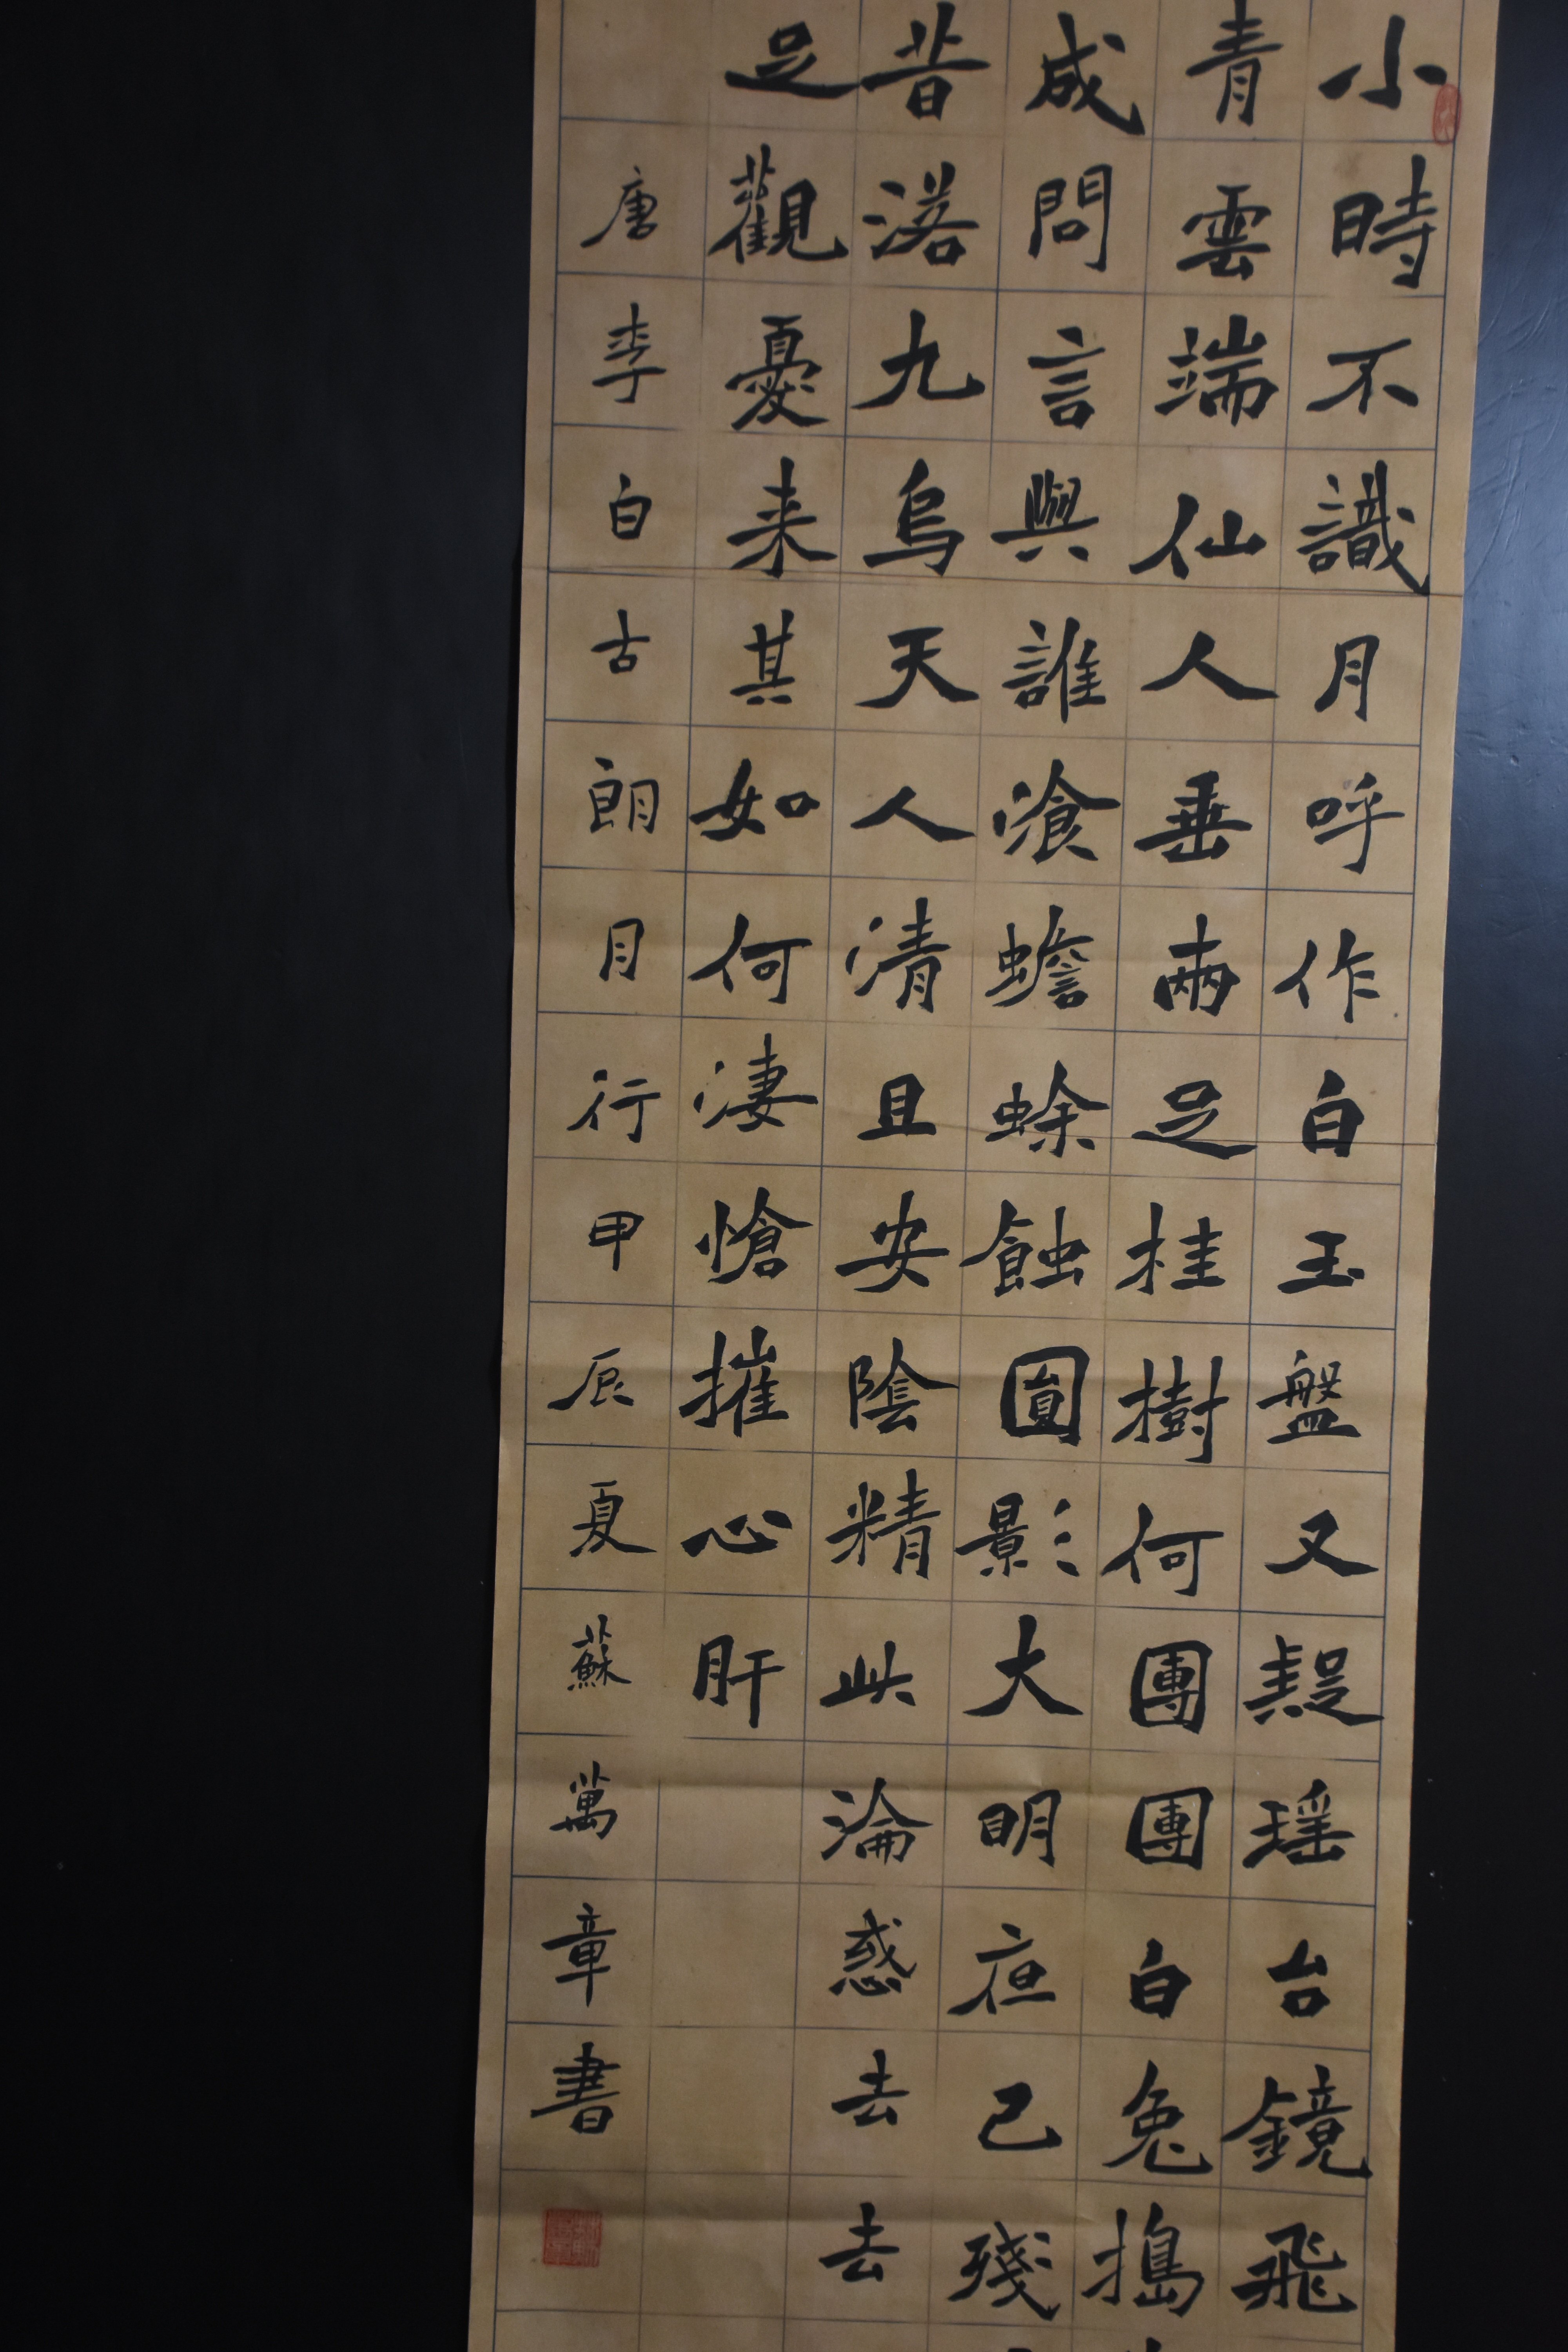 小時不識月呼作白玉盤又疑瑶台鏡飛
青雲端仙人垂兩足桂樹何團團白兔搗
成問言與誰飡蟾蜍蝕圓影大明夜已殘
昔落九烏天人清且安陰精此淪惑去去
足觀憂来其如何淒愴摧心肝
唐李白古朗月行甲辰夏蘇萬章書